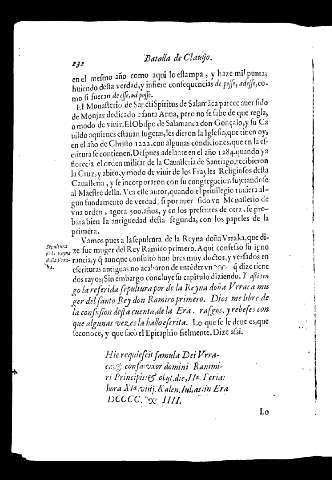 232
Batalla de Clavijo.
en el mesmo año como aqui lo estampa, y haze mil puntas,
huiendo desta verdad, y infiere consequencias de posse, ad esse, co-
mo si fueran de esse, ad posse.
El Monasterio de Sancti Spiritus de Salamãca parece auer sido
de Monjas dedicado a santa Anna, pero no se sabe de que regla,
o modo de viuir. El Obispo de Salamanca don Gonçalo, y su Ca
uildo a quienes estauan sugetas, les dieron la Iglesia, que tienen oy,
en el año de Christo 1222. con algunas condiciones, que en la es-
critura se contienen. Despues adelante en el año 1284. quando ya
florecia el orden militar de la Cauallería de Santiago, recibieron
la Cruz, y abito, y modo de viuir de los Frayles Religiosos desta
Caualleria, y se incorporaron con su congregacion sugetandose
al Maestro della. Vea el le autor, quando el priuilegio tuuiera al-
gun fundamento de verdad, si por auer sido vn Monasterio de
vna orden, agora 300. años, y en los presentes de otra, se pro-
bara bien la antiguedad desta segunda, con los papeles de la
primera.
Vamos pues a la sepultura de la Reyna doña Vraka, que di-
ze fue muger del Rey Ramiro primero. Aqui confiesso su igno
rancia, y q̃ aunque consulto hombres muy doctos, y versados en
escrituras antiguas no acabaron de entẽder vn q̃ dize tiene
dos rayos; Sin embargo concluye su capitulo diziendo. Y assi ten-
go la referida sepultura por de la Reyna doña Veraca mu
ger del santo Rey don Ramiro primero. Dios me libre de
la confusion desta cuenta, de la Era. rasgos, y rebeses con
que algunas vezes la hallo escrita. Lo que se le deue es, que
se conoce, y que sacò el Epitaphio fielmente. Dize assi.
Sepultura
de la Reyna
doña Vra-
ka.
Hic requiescit famula Dei Vera-
ca, & confaxuxor domini Ranimi-
ri Principis: & obijt die, IIa. Feria:
hora XIa. viiij. Kalen. Iulias in Era
DCCCC. IIII.
Lo